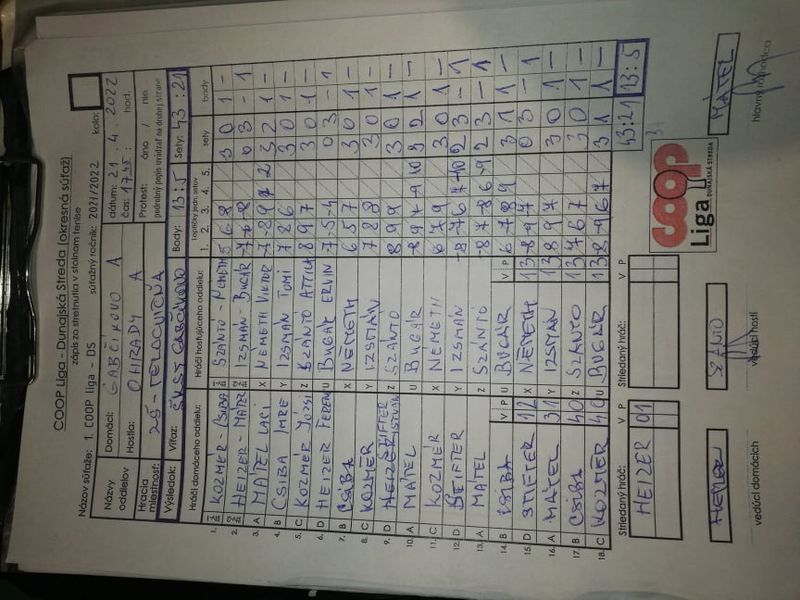 COOP Liga - Dunajská Streda (okresná súťaž)
zápis zo stretnutia v stolnom tenise
Názov súťaže: 1. COOP liga - DS súťažný ročník: 2021/2022 kolo:
Názvy oddielov Domáci: GABČÍKOVO A dátum: 21. 4. 2022
Hostia: OHRADY A čas: 17:35 hod.
Hracia miestnosť: ZŠ - TELOCVIČŇA Protest: áno / nie
podrobný popis uvádzať na druhej strane
Výsledok: Víťaz: ŠKST GABČÍKOVO Body: 13:5 Sety: 43:21
Hráči domáceho oddielu: Hráči hosťujúceho oddielu: Loptičky jedn. setov sety body
1. 2. 3. 4. 5.
1. KOZMÉR - CSIBA SZÁNTÓ - NÉMETH 5 6 8 3 0 1 -
2. HEIZER - MÁTEL IZSMÁN - BUGÁR -7 -6 -8 0 3 - 1
3. A MÁTEL LACI X NÉMETH VIKTOR -7 -8 9 7 2 3 2 1 -
4. B CSIBA IMRE Y IZSMÁN TOMI 7 8 6 3 0 1 -
5. C KOZMÉR JÓZSI Z SZÁNTÓ ATTILA 8 9 7 3 0 1 -
6. D HEIZER FERENC U BUGÁR ERVIN -7 -5 -4 0 3 - 1
7. B CSIBA X NÉMETH 6 5 7 3 0 1 -
8. C KOZMÉR Y IZSMÁN 7 8 8 3 0 1 -
9. D STIFTER Z SZÁNTÓ 8 9 9 3 0 1 -
10. A MÁTEL U BUGÁR -8 9 7 -9 10 3 2 1 -
11. C KOZMÉR X NÉMETH 6 7 9 3 0 1 -
12. D STIFTER Y IZSMÁN -8 7 6 -7 -10 2 3 - 1
13. A MÁTEL Z SZÁNTÓ -8 7 -8 6 -9 2 3 - 1
14. B CSIBA U BUGÁR 6 -7 8 9 3 1 1 -
V P V P
15. D STIFTER 1 2 X NÉMETH 1 3 -8 -9 -7 0 3 - 1
16. A MÁTEL 3 1 Y IZSMÁN 1 3 8 9 7 3 0 1 -
17. B CSIBA 4 0 Z SZÁNTÓ 1 3 7 6 7 3 0 1 -
18. C KOZMÉR 4 0 U BUGÁR 1 3 8 -9 6 7 3 1 1 -
43:21 13:5
Striedaný hráč: V P Striedaný hráč: V P
HEIZER 0 1
COOP
Liga
DUNAJSKÁ STREDA
SZÁNTÓ MÁTEL
vedúci domácich vedúci hostí hlavný rozhodca